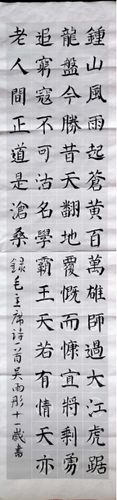 鍾山風雨起蒼黄百萬雄師過大江虎踞
龍盤今勝昔天翻地覆慨而慷宜將剩勇
追窮寇不可沽名學霸王天若有情天亦
老人間正道是滄桑 録毛主席诗首吴雨彤十一歲書